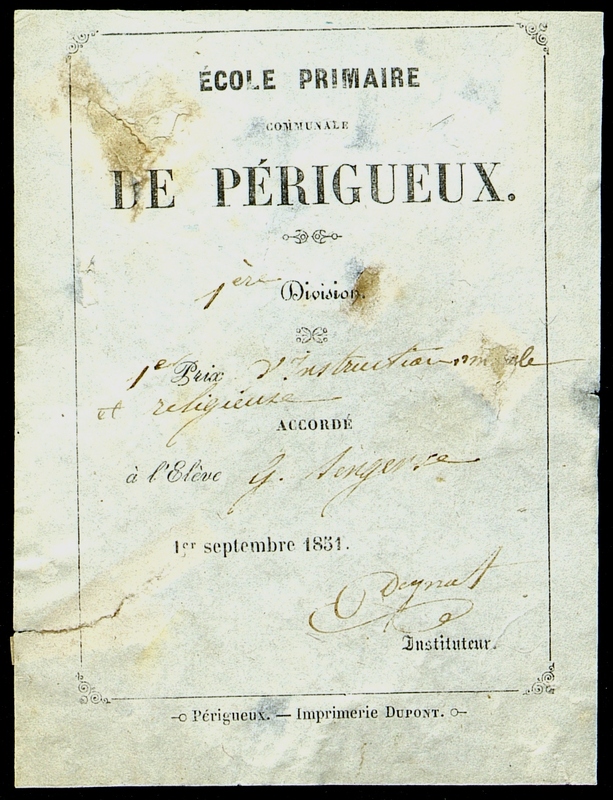 ÉCOLE PRIMAIRE
COMMUNALE
DE PÉRIGUEUX.
1ère Division.
1e Prix d'Instruction morale
et religieuse
ACCORDÉ
à l'Elève G.
1er septembre 1851.
Instituteur.
Périgueux. — Imprimerie DUPONT.